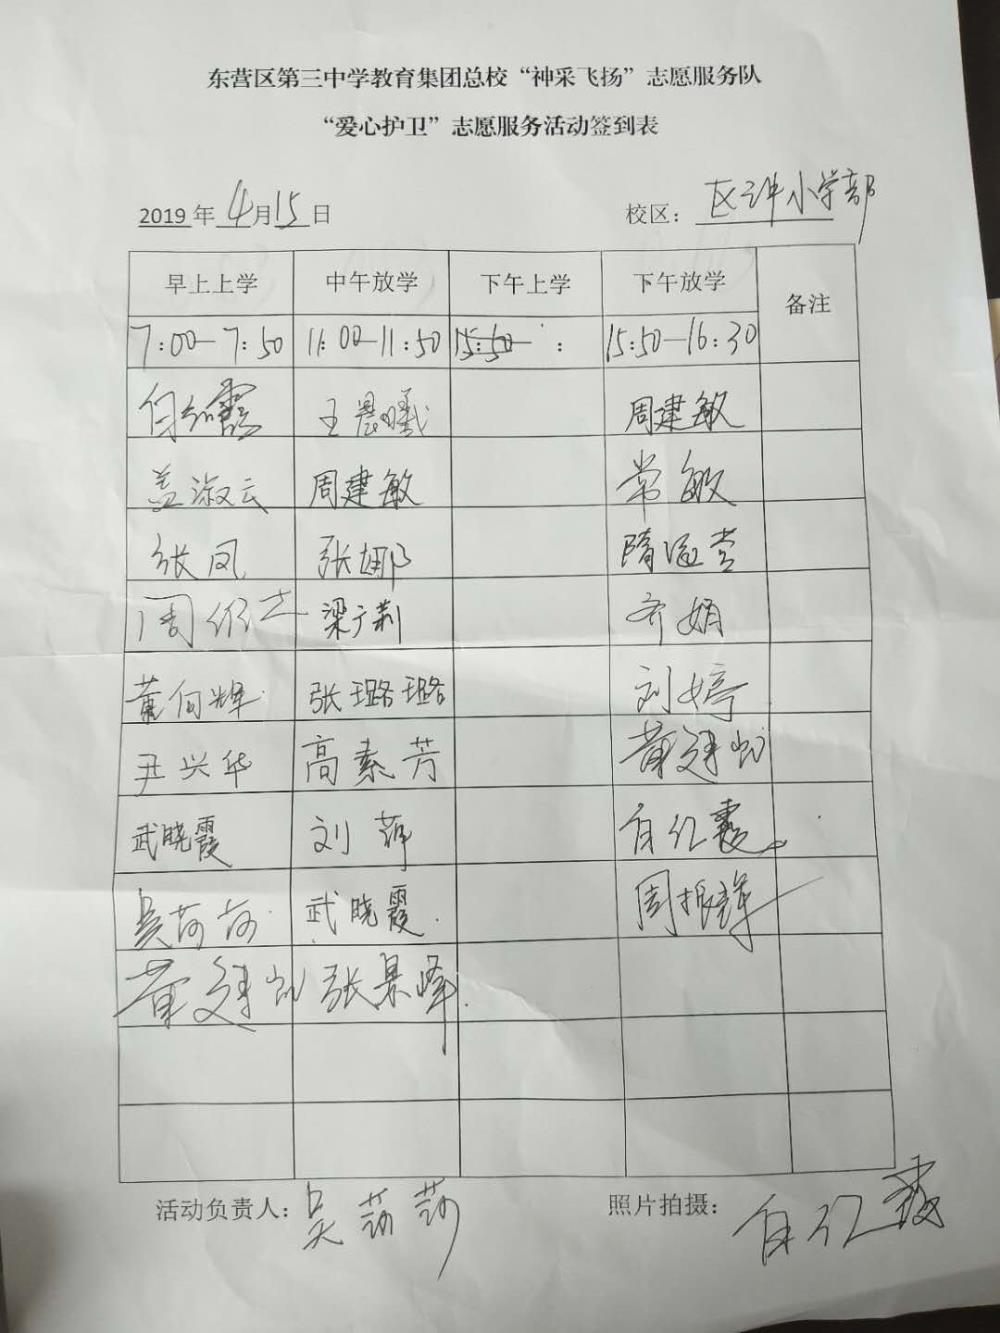 东营区第三中学教育集团总校“神采飞扬”志愿服务队
“爱心护卫”志愿服务活动签到表
2019年4月15日 校区：区三中小学部
早上上学 中午放学 下午上学 下午放学 备注
7:00—7:50 11:00—11:50 15:50— : 15:50—16:30
王晨曦 周建敏
盖淑云 周建敏 常敏
张凤 张娜
梁广莉 齐娟
董向辉 张璐璐 刘婷
尹兴华 高素芳 黄建凯
武晓霞 刘萍 自红霞
吴莎莎 武晓霞 周振锋
黄建凯 张景峰
活动负责人：吴莎莎 照片拍摄：自红霞